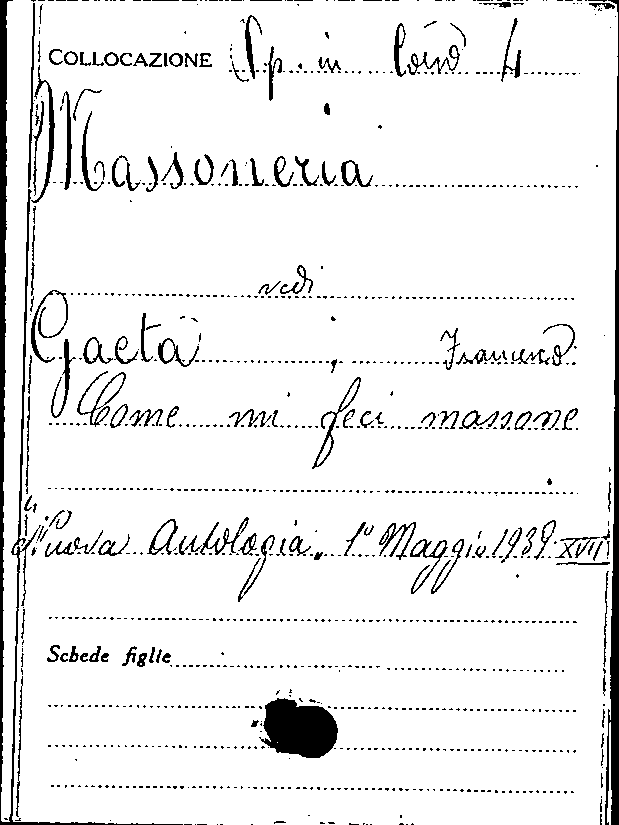 COLLOCAZIONE Sp. in 4
Massoneria
vedi
Gaeta, Francesco
Come mi feci massone
in
"Nuova Antologia" 1° Maggio 1939-XVII
Schede figlie